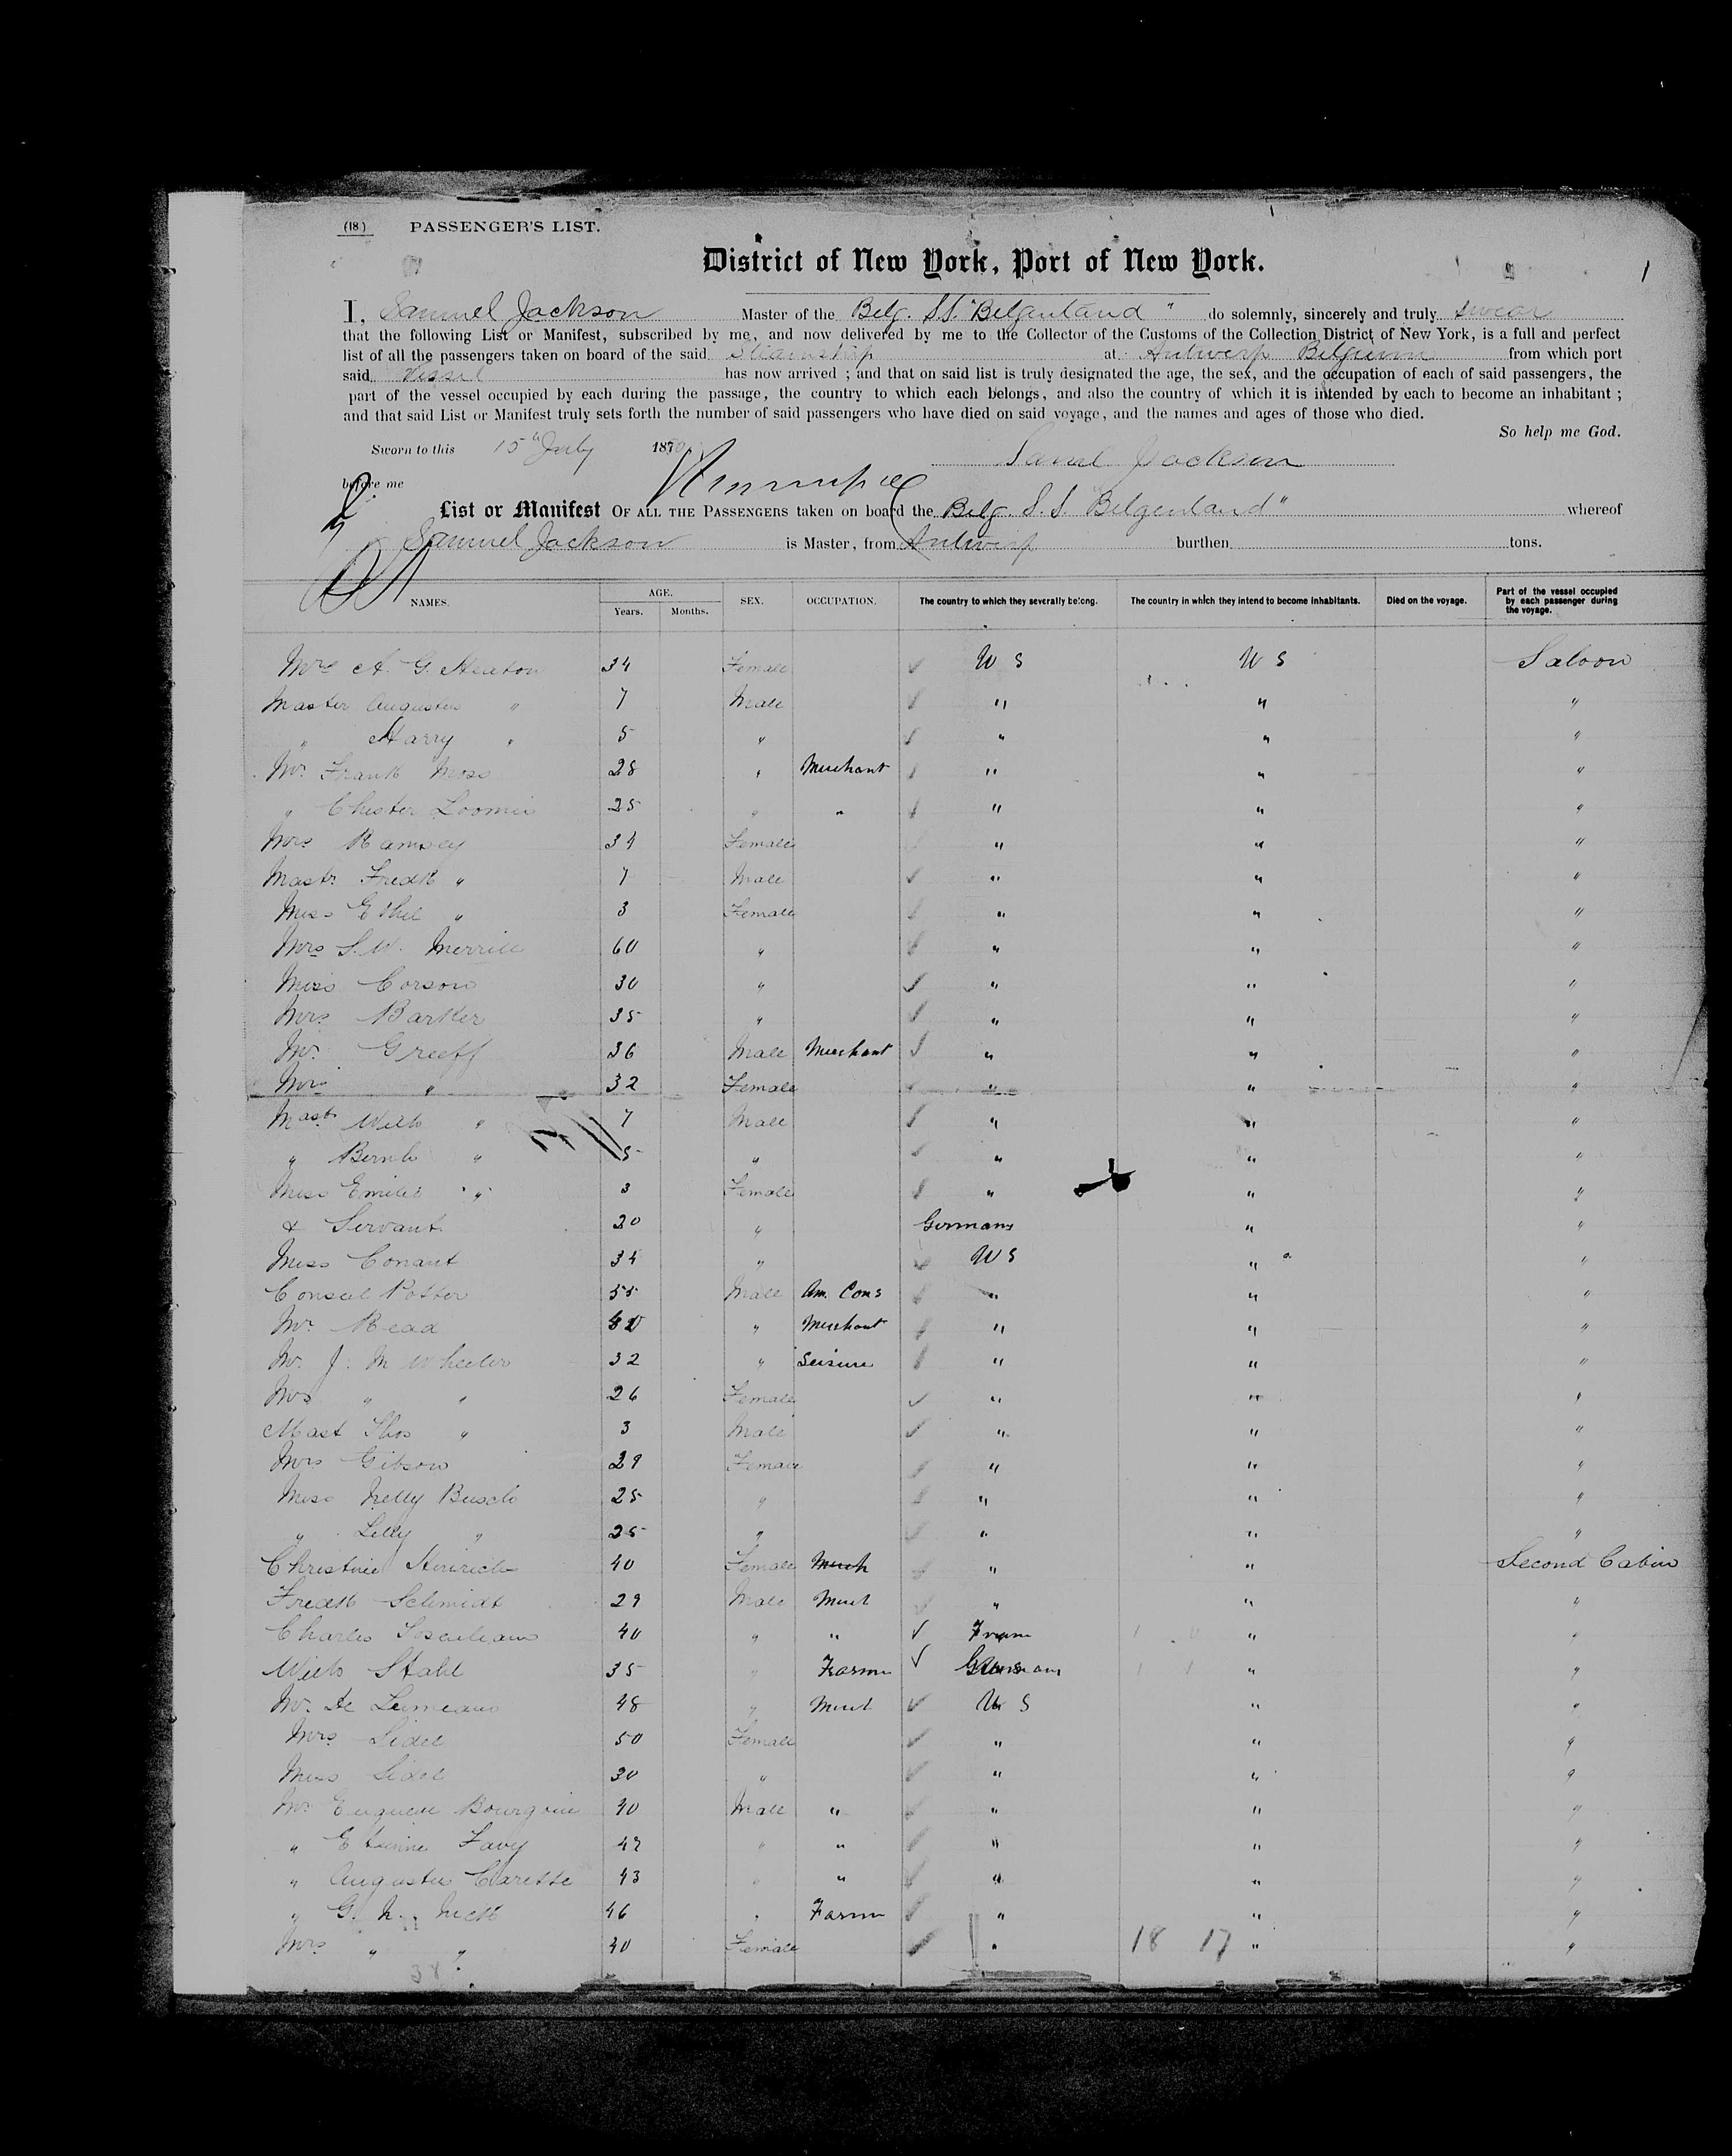 (18) PASSENGER'S LIST.
1
District of New York, Port of New York.
I, Samuel Jackson Master of the Belg. S.S. "Belgenland" do solemnly, sincerely and truly swear
that the following List or Manifest, subscribed by me, and now delivered by me to the Collector of the Customs of the Collection District of New York, is a full and perfect
list of all the passengers taken on board of the said Steamship at Antwerp Belgium from which port
said Vessel has now arrived ; and that on said list is truly designated the age, the sex, and the occupation of each of said passengers, the
part of the vessel occupied by each during the passage, the country to which each belongs, and also the country of which it is intended by each to become an inhabitant ;
and that said List or Manifest truly sets forth the number of said passengers who have died on said voyage, and the names and ages of those who died.
So help me God.
Sworn to this 15" July 18
Saml Jackson
before me
List or Manifest OF ALL THE PASSENGERS taken on board the Belg. S.S. "Belgenland" whereof
Samuel Jackson is Master, from Antwerp burthen tons.
NAMES. AGE. Years. Months. SEX. OCCUPATION. The country to which they severally belong. The country in which they intend to become inhabitants. Died on the voyage. Part of the vessel occupied by each passenger during the voyage.
Mrs A. G. Heaton 34 Female U S U S Saloon
Master Augustus " 7 Male " " "
" Harry " 5 " " " "
Mr. Frank Moss 28 " Merchant " " "
" Chester Loomis 25 " " " " "
Mrs Ramsey 34 Female " " "
Mastr Fredk " 7 Male " " "
Miss Ethel " 3 Female " " "
Mrs S. W. Merrill 60 " " " "
Miss Corson 30 " " " "
Mrs Barker 35 " " " "
Mr. Greeff 36 Male Merchant " " "
Mrs " 32 Female " " "
Mast. Wilh " 7 Male " " "
" Bernh " 5 " " " "
Miss Emilie " 3 Female " " "
& Servant 20 " Germany " "
Miss Conant 34 " U S " "
Consul Potter 55 Male Am. Cons " " "
Mr. Read " Merchant " " "
Mr. J. M Wheeler 32 " Leisure " " "
Mrs " " 26 Female " " "
Mast Thos " 3 Male " " "
Mrs Gibson 29 Female " " "
Miss Nelly Busch 25 " " " "
" Lilly " 25 " " " "
Christine Heinrich 40 Female Merch " " Second Cabin
Fredk Schmidt 29 Male Mert " " "
Charles 40 " " " "
Wilh Stahl 35 " Farm German " "
Mr. De 48 " Mert U S " "
Mrs Sidel 50 Female " " "
Miss Sidel 30 " " " "
Mr Eugene 40 Male " " " "
" Etienne Favy 42 " " " " "
" Augustus Clarette 43 " " " " "
" G. N. Nick 46 " Farm " " "
Mrs " " 40 Female " 18 17 " "
38